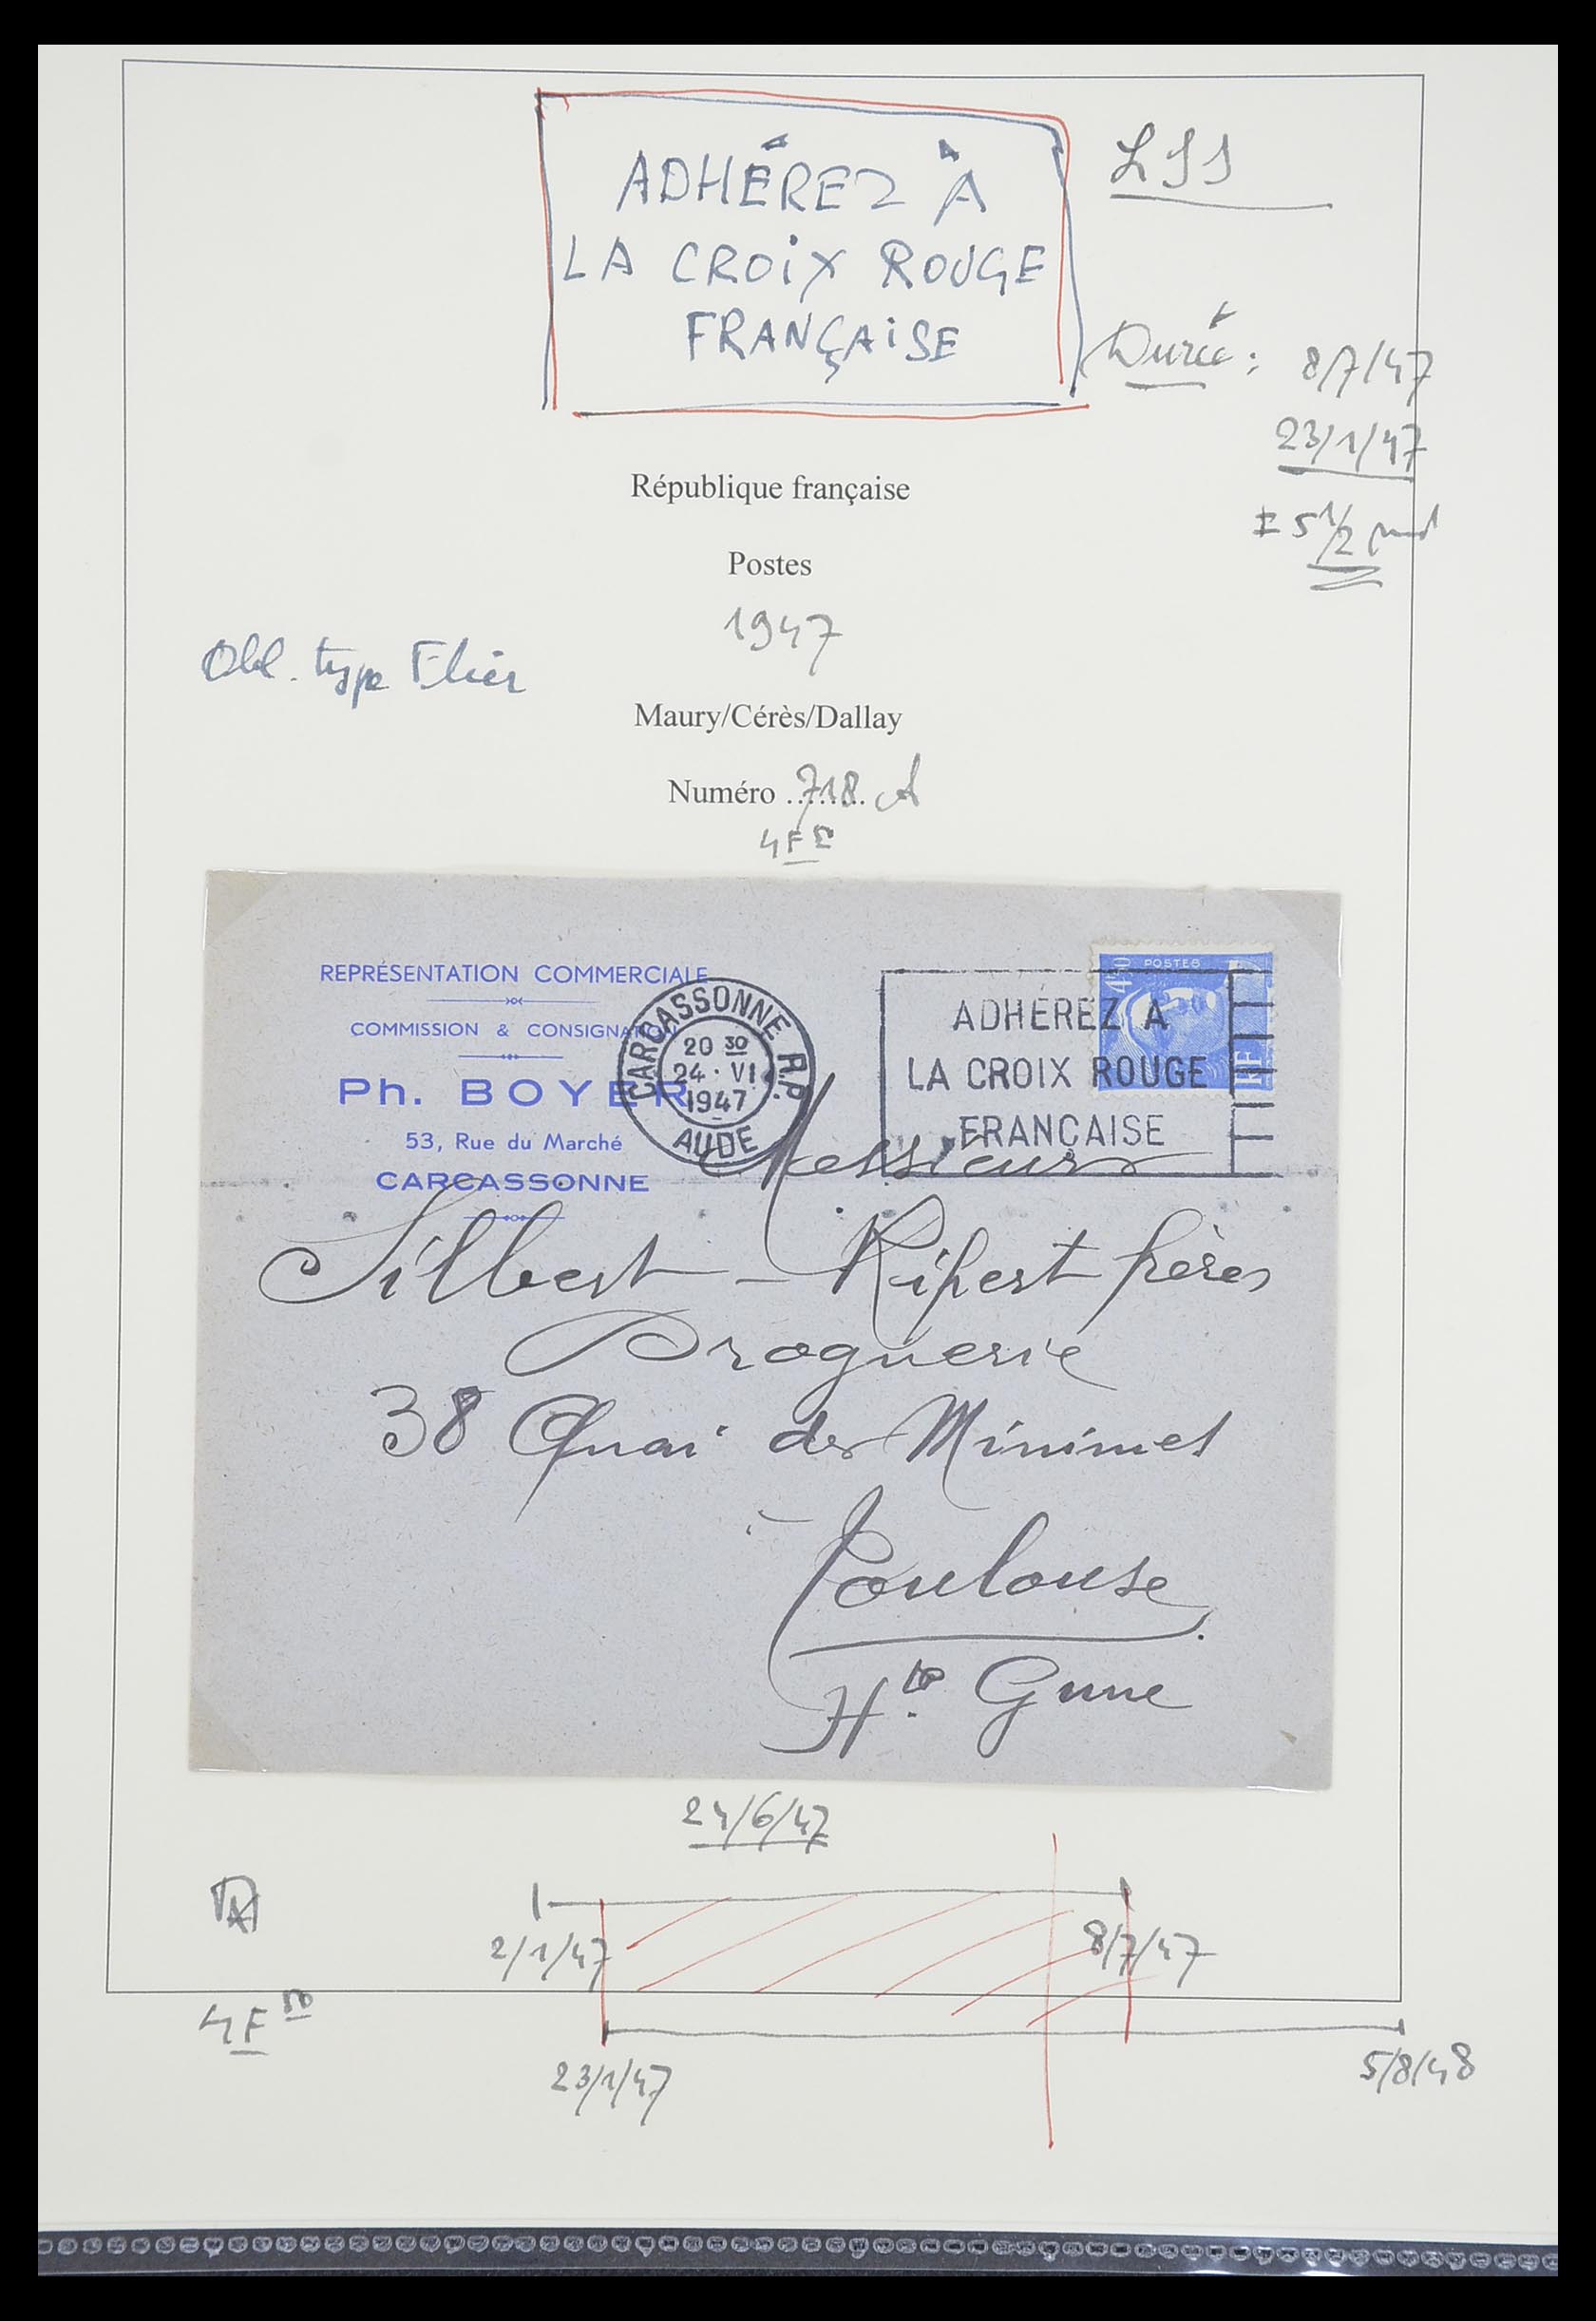 ADHÉREZ À
LA CROiX ROUGE
FRANÇAiSE
LSS
Durée :
8/7/47
23/1/47
± 5 1/2
République française
Postes
1947
Obl. type Flier
Maury/Cérès/Dallay
Numéro 718 A
4 F
REPRÉSENTATION COMMERCIALE
COMMISSION & CONSIGNATION
Ph. BOYER
53, Rue du Marché
CARCASSONNE
CARCASSONNE R.P.
20 30
24 · VI
1947
AUDE
POSTES
4F50
RF
ADHÉREZ A
LA CROIX ROUGE
FRANÇAISE
Messieurs
Silbert - Ripert frères
Droguerie
38 Quai des Minimes
Toulouse
Hte Gnne
24/6/47
2/1/47
8/7/47
4 F 50
23/1/47
5/8/48